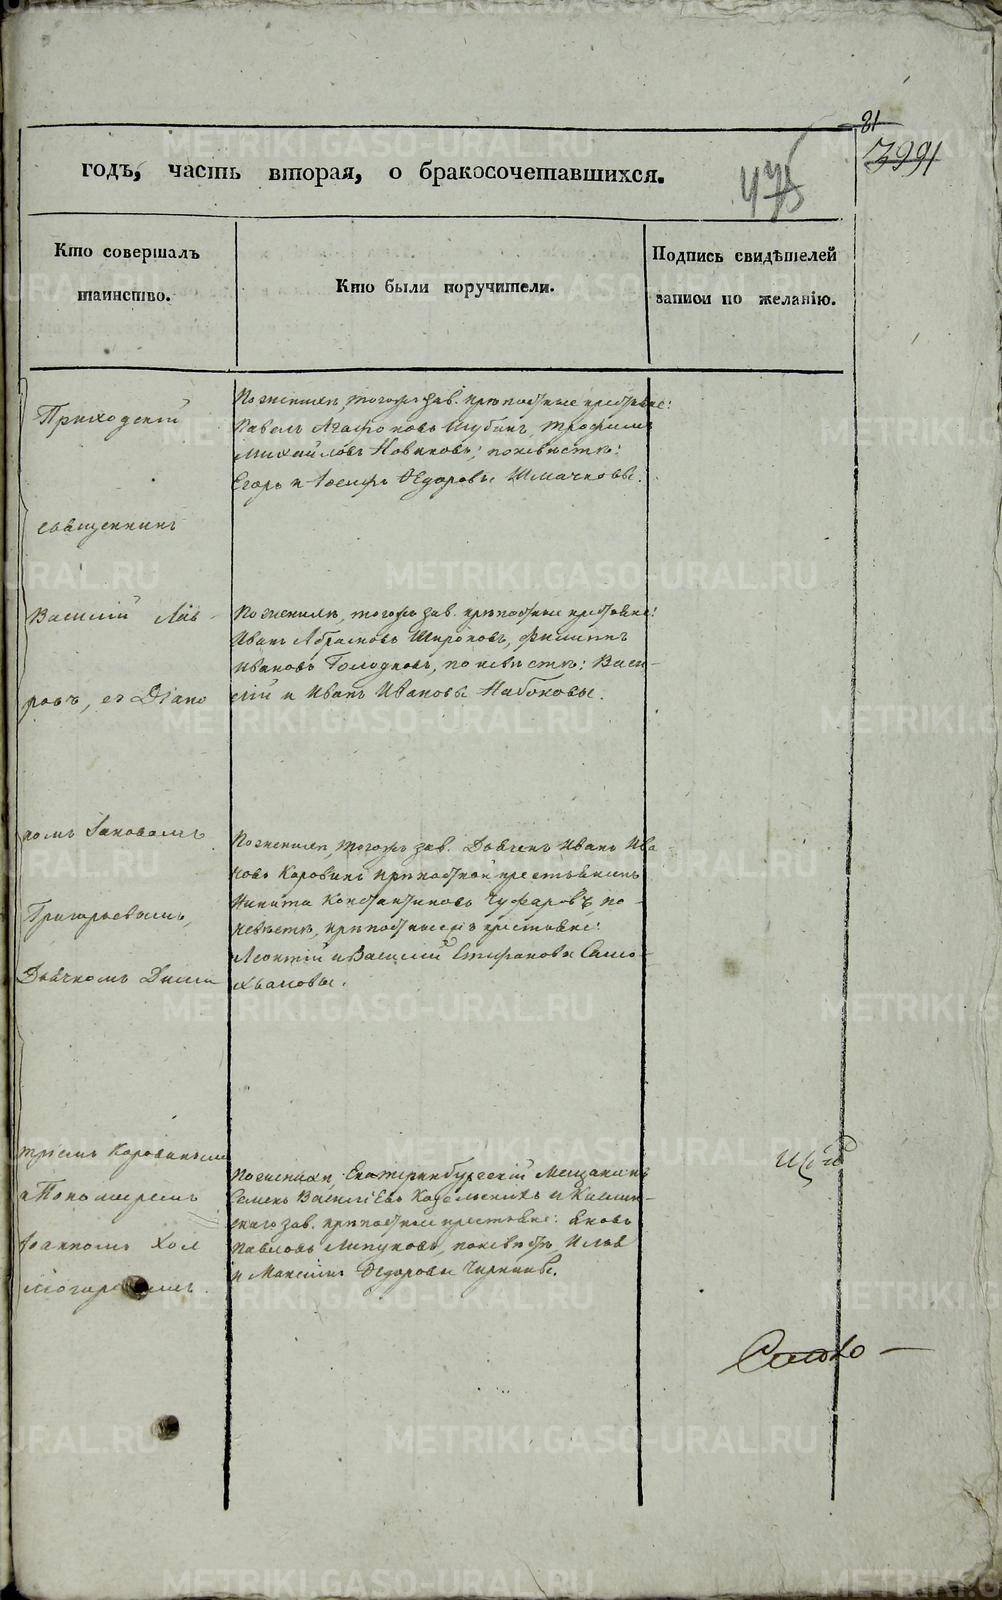 81
3991
годъ, часть вторая, о бракосочетавшихся.
475
Кто совершалъ
таинство.
Кто были поручители.
Подпись свидѣтелей
записи по желанію.
Приходскій
священникъ
Василій Лав-
ровъ, съ Діако
номъ Іаковомъ
Григорьевымъ,
Дьячкомъ Дими
тріемъ Коровинымъ
и Пономаремъ
Іоанномъ Хол
могоровымъ.
По женихѣ, тогожъ зав. крѣпостные крестьяне:
Павелъ Агафоновъ Шубинъ, Трофимъ
Михайловъ Новиковъ; по невѣстѣ:
Егоръ и Іосифъ Ѳедоровы Шмачковы.
По женихѣ, тогожъ зав. крѣпостные крестьяне:
Иванъ Абрамовъ Широковъ, Филиппъ
Ивановъ Голодновъ, по невѣстѣ: Васи-
лій и Иванъ Ивановы Набоковы.
По женихѣ, тогожъ зав. Дьячекъ Иванъ Ива
новъ Коровинъ крѣпостной крестьянинъ
Никита Константиновъ Чуфаровъ, по
невѣстѣ, крѣпостные крестьяне:
Леонтій и Василій Стефановы Само-
хваловы.
По женихѣ, Екатеринбургскій Мещанинъ
Семенъ Васильевъ Козельскихъ и Каслин-
скаго зав. крѣпостные крестьяне: Яковъ
Павловъ Липуновъ, по невѣстѣ, Илья
и Максимъ Ѳедоровы Чиркины.
METRIKI.GASO-URAL.RU